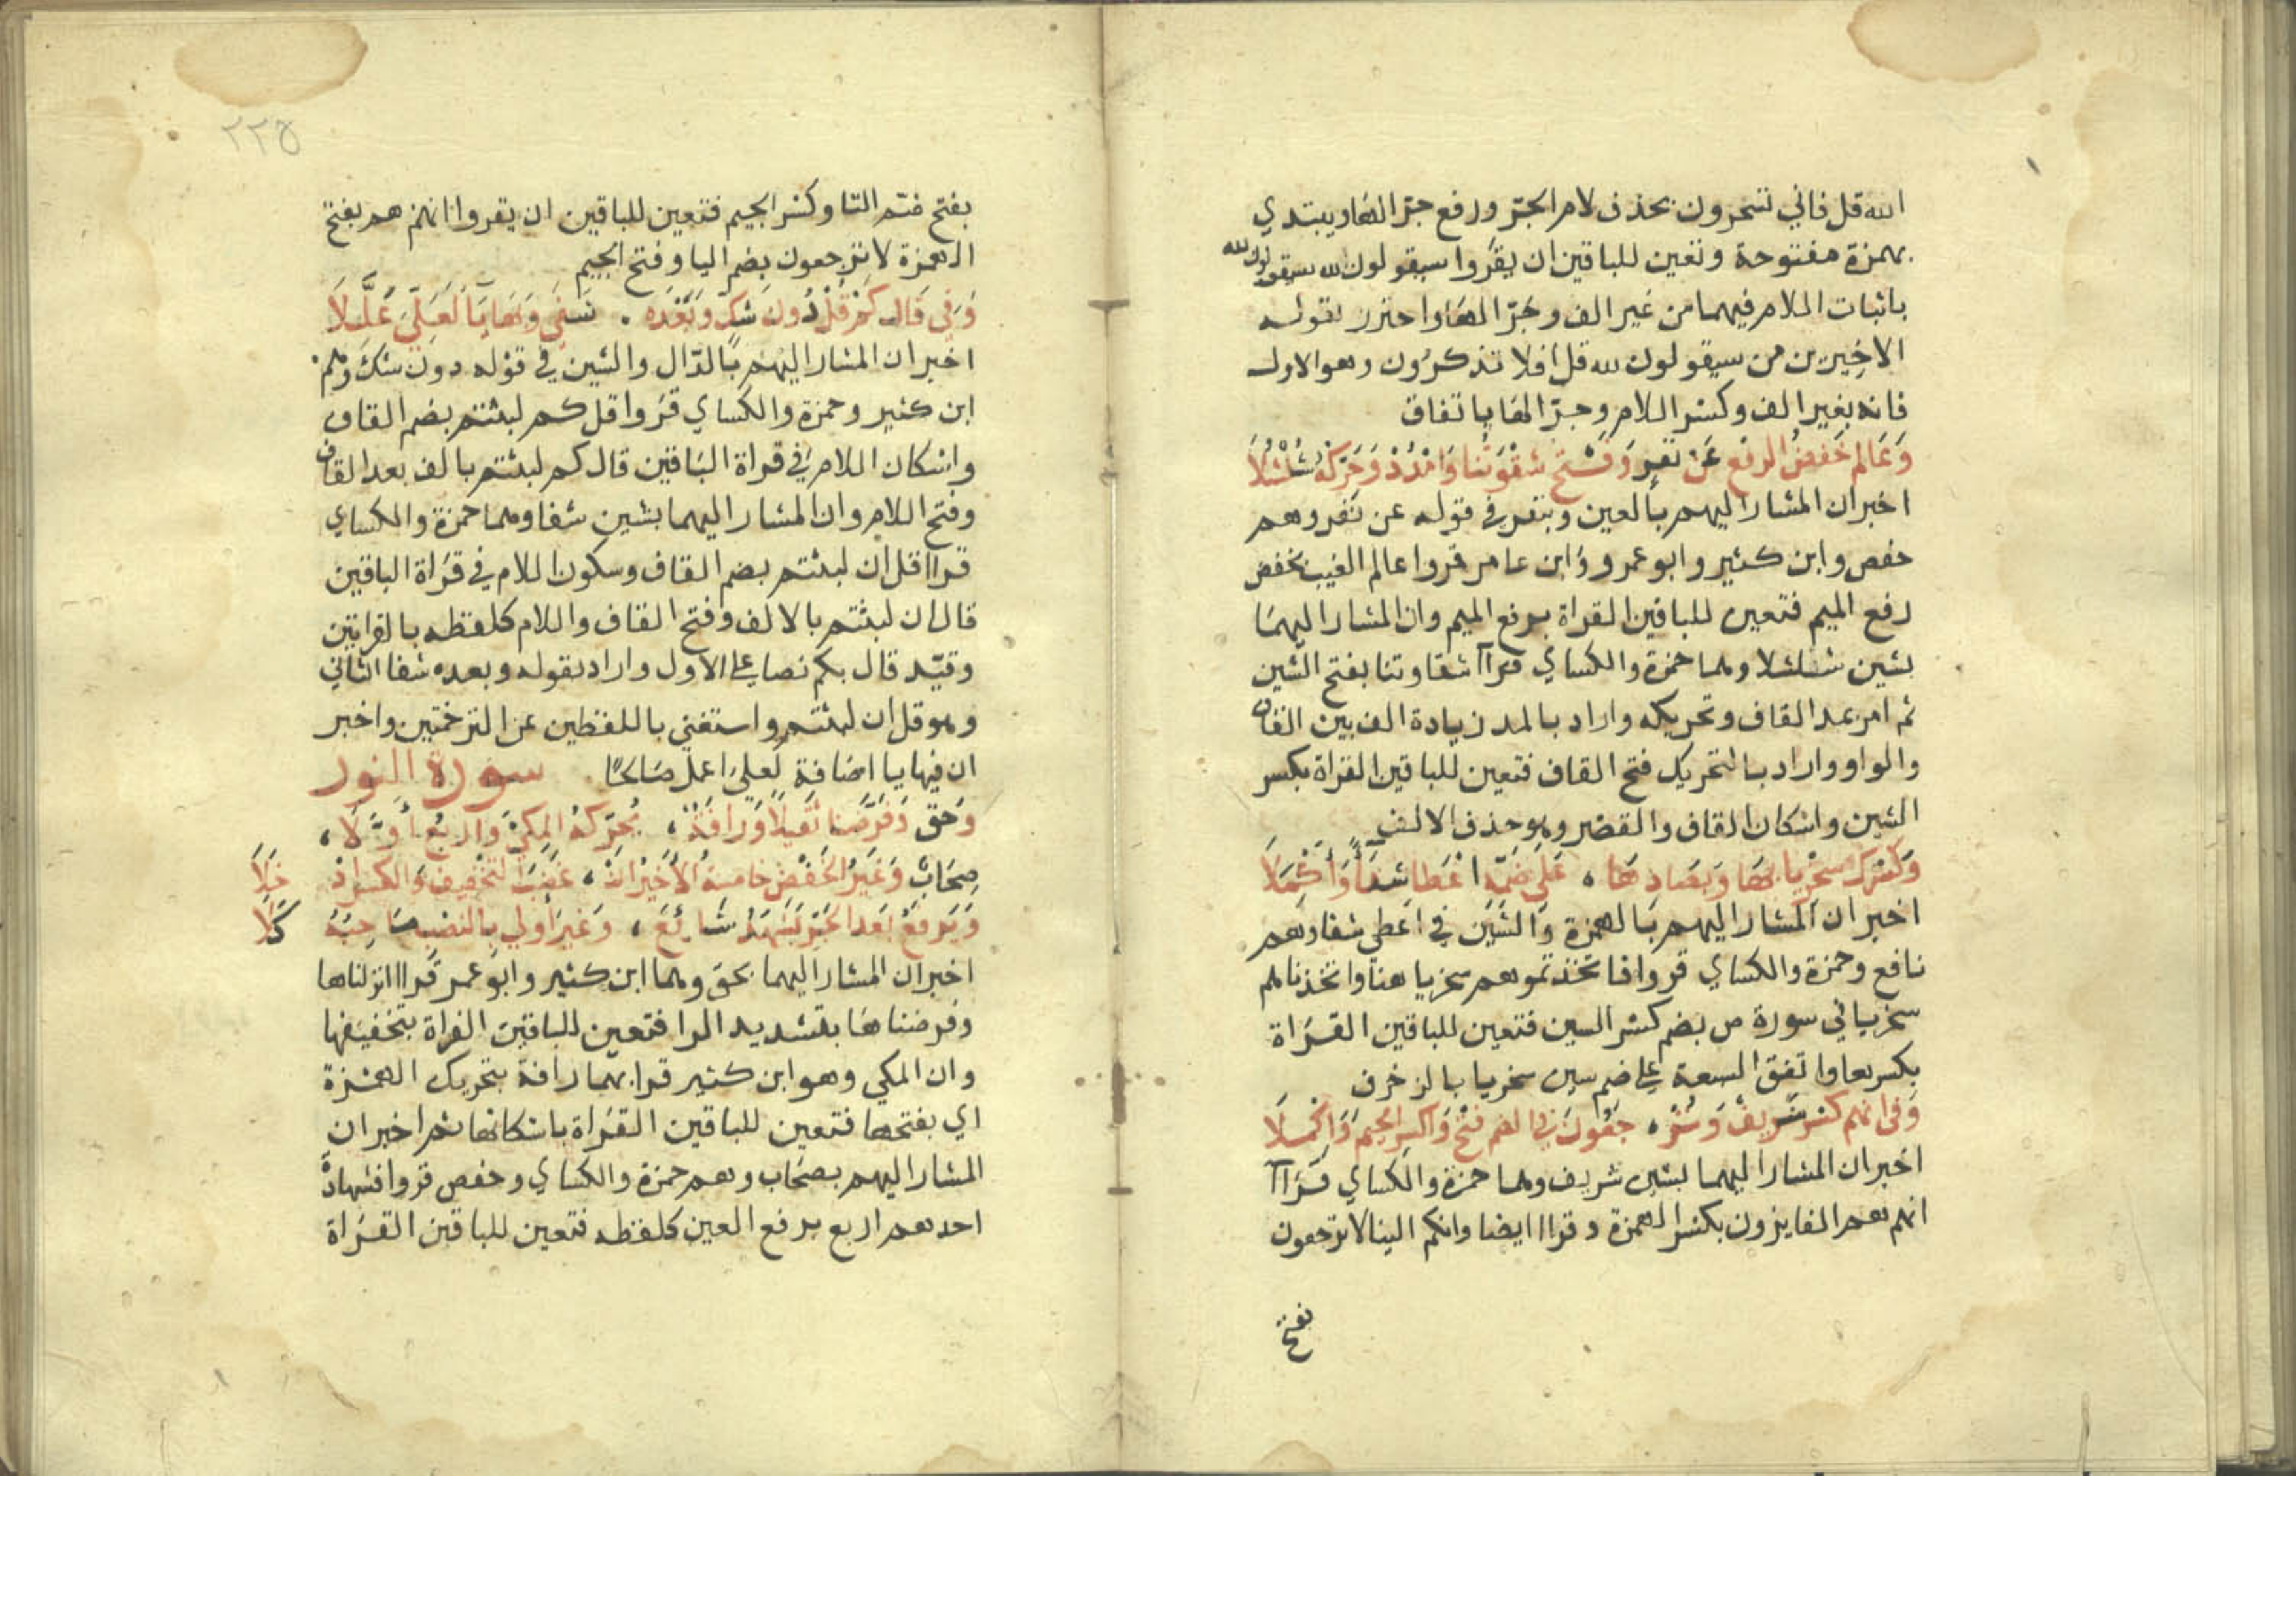 الله قل فاني تسحرون بحذف لام الجر ورفع جر الها ويبتدي
بهمزة مفتوحة وتعين للباقين ان يقروا سيقولون لله سيقولون لله
باثبات اللام فيهما من غير الف وجر الها واحترز بقوله
الاخيرين من سيقولون لله قل افلا تذكرون وهو الاول
فانه بغير الف وكسر اللام وجر الها باتفاق
وَعَالم خَفضُ الرفع عَن نفرٍ وَفتح شقوتنا وَامدد وَحَركه شلشلا
اخبر ان المشار اليهم بالعين وبنفر في قوله عن نفر وهم
حفص وابن كثير وابو عمرو وابن عامر قروا عالم الغيب بخفض
رفع الميم فتعين للباقين القراة برفع الميم وان المشار اليهما
بشين شلشلا وهما حمزة والكساي قرآ شقاوتنا بفتح الشين
ثم امر بمد القاف وتحريكه واراد بالمد زيادة الف بين القاف
والواو واراد بالتحريك فتح القاف فتعين للباقين القراة بكسر
الشين واسكان القاف والقصر وهو حذف الالف
وَكسرك سخريا بها وَبصَادها ، عَلى ضمه اعْطا شفاً وَأكْمَلَا
اخبر ان المشار اليهم بالهمزة والشين في اعطي شفا وهم
نافع وحمزة والكساي قروا فاتخذتموهم سخريا هنا واتخذناهم
سخريا في سورة ص بضم كسر السين فتعين للباقين القراة
بكسرها واتفق السبعة على ضم سين سخريا بالزخرف
وَفى انهم كسر شريف وَترْ ، جعُونَ في الضم فتح وَاكسر الجيم وَاكملَا
اخبر ان المشار اليهما بشين شريف وهما حمزة والكساي قرآ
انهم هم الفايزون بكسر الهمزة وقراا ايضا وانكم الينا لا ترجعون
بفتح
٢٢٥
بفتح ضم التا وكسر الجيم فتعين للباقين ان يقروا انهم هم بفتح
الهمزة لا ترجعون بضم اليا وفتح الجيم
وَفي قَال كمْ قُلْ دُونَ شك وَبَعْدَه . شفى وَبهَا يَا لَعَلي عُلِّلَا
اخبر ان المشار اليهم بالدال والشين في قوله دون شك وهم
ابن كثير وحمزة والكساي قروا قل كم لبثتم بضم القاف
واسكان اللام في قراة الباقين قال كم لبثتم بالف بعد القاف
وفتح اللام وان المشار اليهما بشين شفا وهما حمزة والكساي
قراا قل ان لبثتم بضم القاف وسكون اللام في قراة الباقين
قال ان لبثتم بالالف وفتح القاف واللام كلفظه بالقرايتين
وقيد قال بكم نصا على الاول واراد بقوله وبعده شفا الثاني
وهو قل ان لبثتم واستغني باللفظين عن الترجمتين واخبر
ان فيها يا اضافة لعلي اعمل صالحًا . سورة النور
وَحَق وَفَرَّضنا ثقيلًا وَرَافة ، يُحَركهُ المكيّ وَاربعُ أوَّلَا ،
صِحَابٌ وَغَيرُ الحَفْض خامسةُ الأخيرُ أنْ ، غضبَ التخفيف وَالكسر ادْخلَا
وَيَرفعُ بَعد الجر يَشهَدُ شَائعٌ ، وَغير أولي بالنصب صَاحبُهُ كَلا
اخبر ان المشار اليهما بحق وهما ابن كثير وابو عمر قراا انزلناها
وفرضناها بتشديد الرا فتعين للباقين القراة بتخفيفها
وان المكي وهو ابن كثير قرا بهما رافة بتحريك الهمزة
اي بفتحها فتعين للباقين القراة باسكانها ثم اخبر ان
المشار اليهم بصحاب وهم حمزة والكساي وحفص قروا فشهادة
احدهم اربع برفع العين كلفظه فتعين للباقين القراة